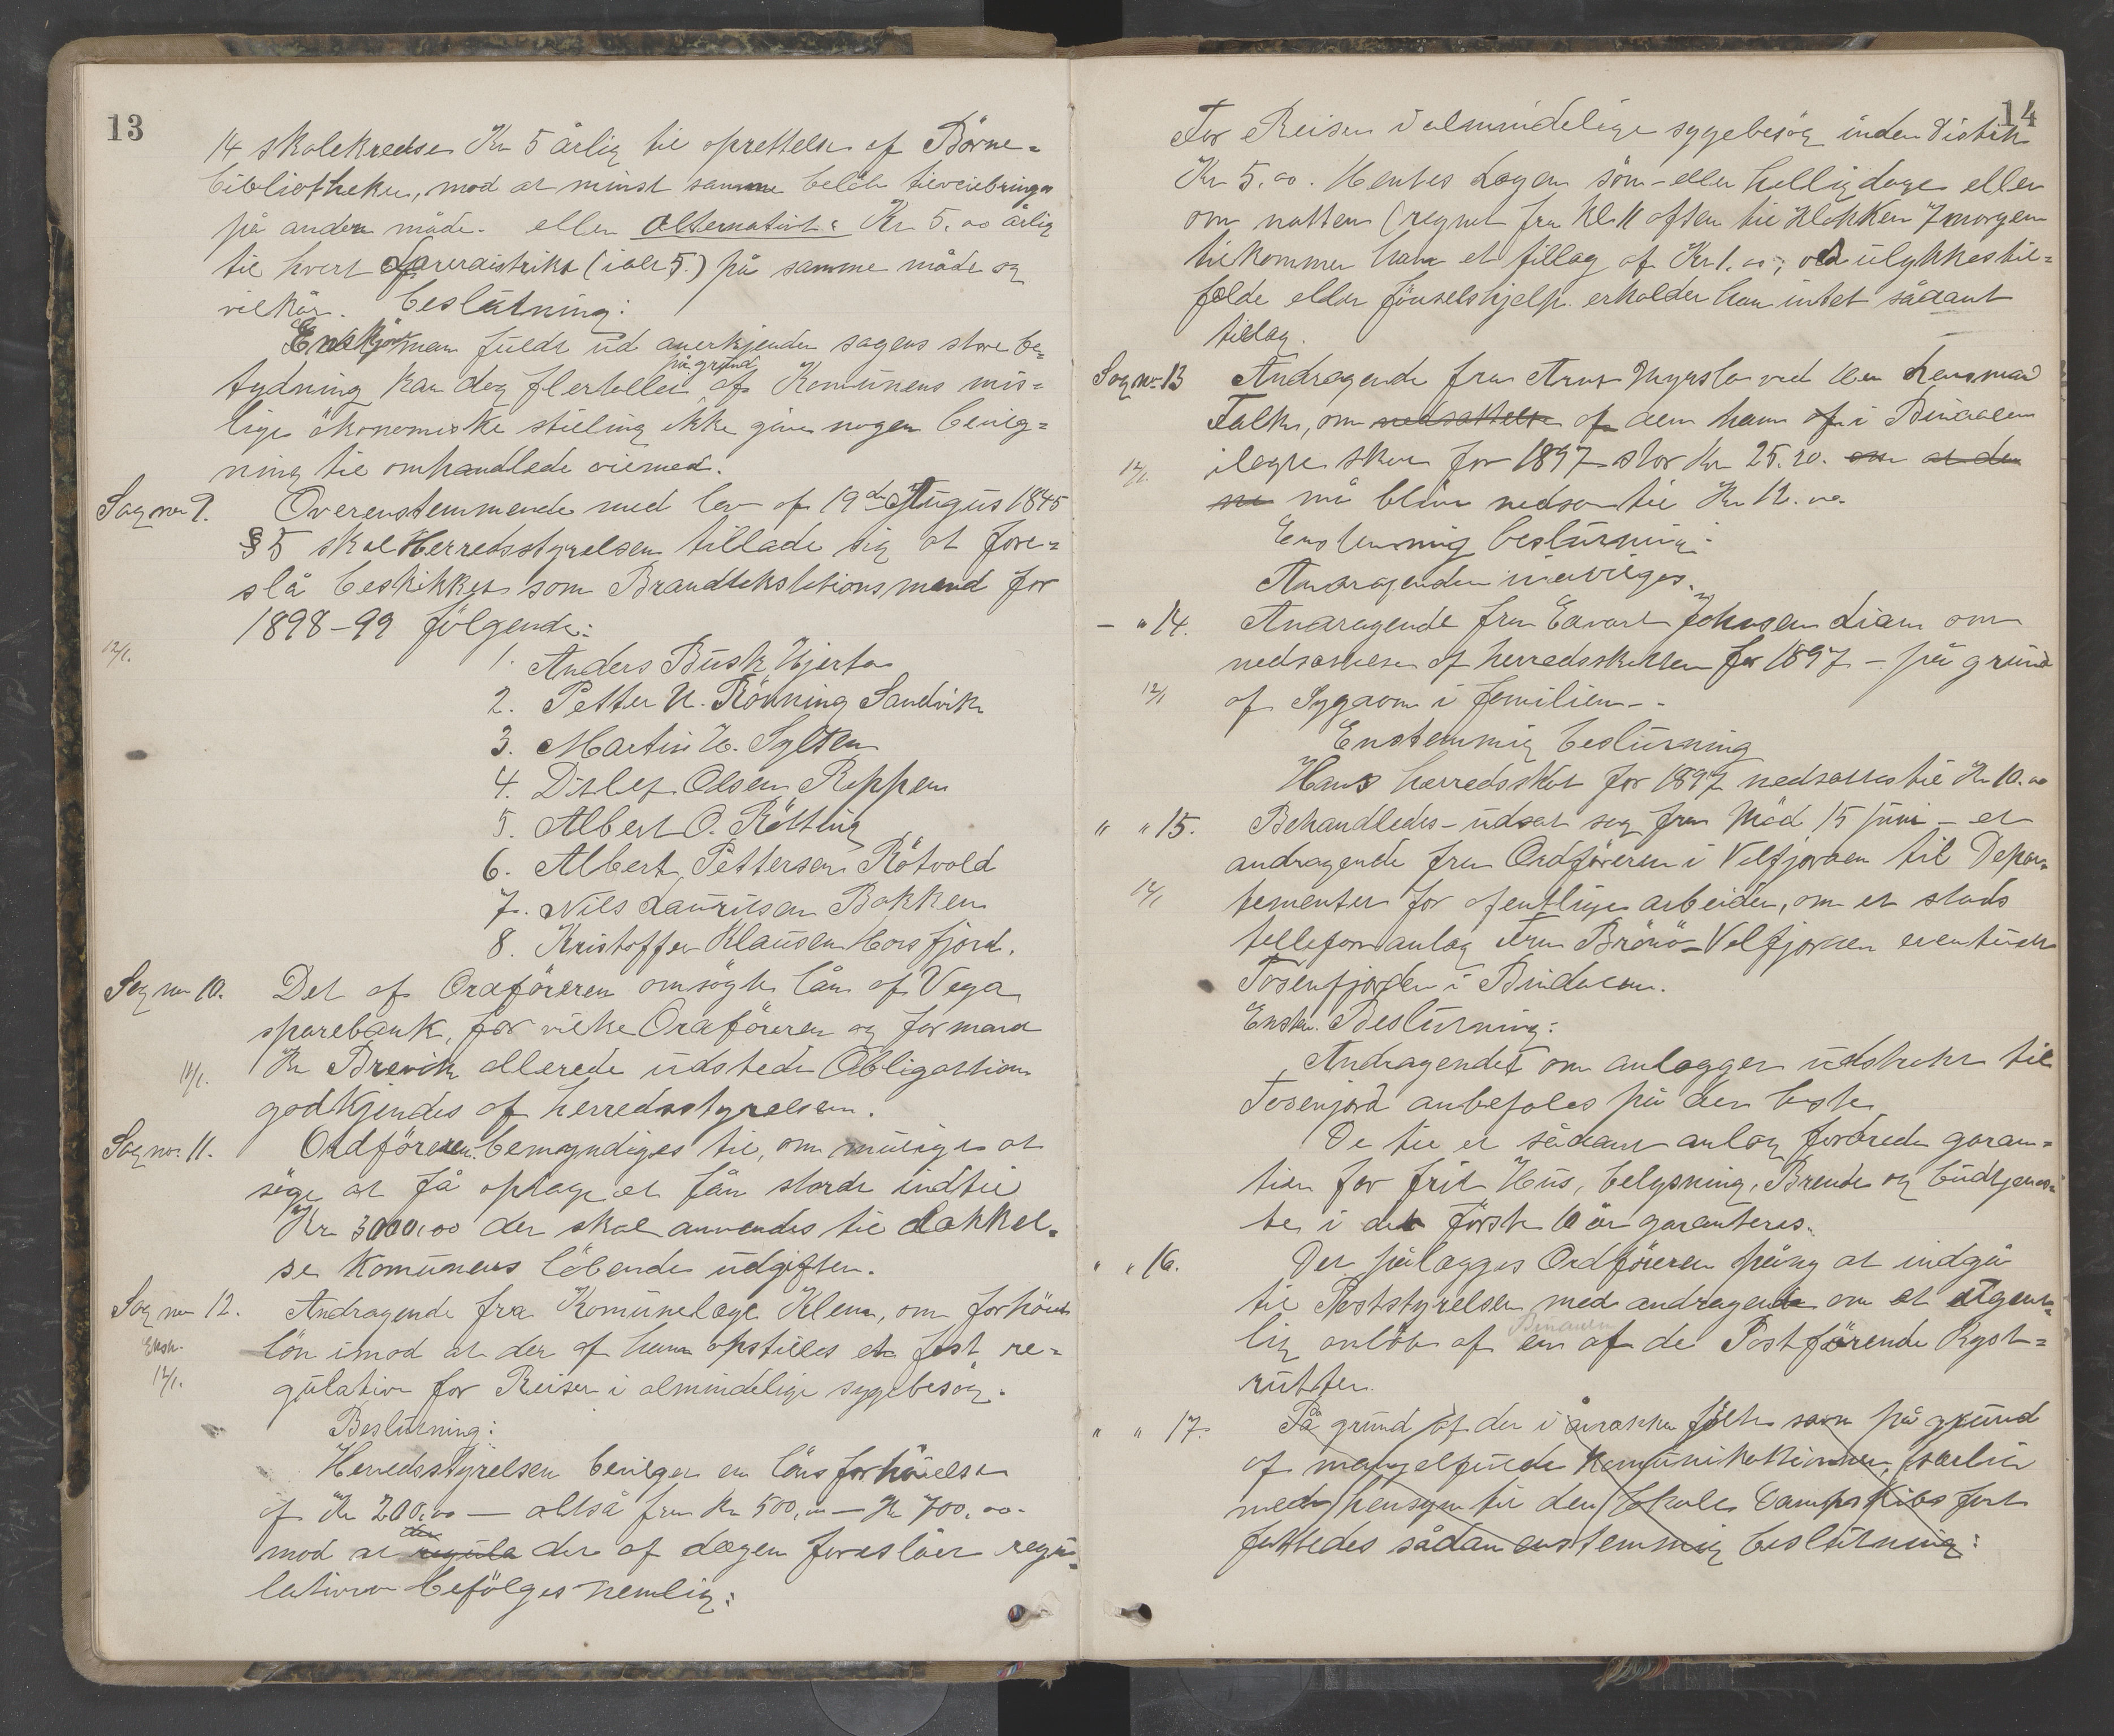 13
14 skolekredse Kr 5 årlig til oprettelse af Börne-
bibliotheker, mod at minst samme belöb tilveiebringes
på anden måde. eller alternativt: Kr 5.00 årlig
til hvert Lærerdistrikt (ialt 5.) på samme måde og
vilkår. beslutning:
Endskjönt man fuldt ud anerkjender sagens store be-
på grund
tydning kan dog flertallet af Komunens mis-
lige ökonomiske stilling ikke give nogen bevilg-
ning til omhandlede öiemed.
Sag no 9. Overenstemmende med lov af 19de August 1845
§ 5 skal Herredsstyrelsen tillade sig at fore-
slå beskikket som Brandtakstationsmænd for
1898-99 fölgende:
12/1.
1. Anders Busk Hjerto
2. Petter N. Rönning Sandvik
3. Martin H. Sylten
4. Ditlef Olsen Reppen
5. Albert O. Rölting
6. Albert Pettersen Rötvold
7. Nils Lauritsen Bakken
8. Kristoffer Klausen Horsfjord.
Sag no 10. Det af Ordföreren omsögte lån af Vega
sparebank, for vilke Ordföreren og formand
12/1. Hr Brevik allerede udstedt Obligation
godkjendes af herredsstyrelsen.
Sag no. 11. Ordföreren bemyndiges til, om muligt at
söge at få optage et lån stort indtil
Kr 3000,00 der skal anvendes til dækkel-
se Komunens löbende udgifter.
Sag no 12. Andragende fra Komunelæge Klem, om forhöiet
Enst. lön imod at der af ham opstilles et fast re-
12/1. gulativ for Reiser i almindelige sygebesög.
Beslutning:
Herredsstyrelsen bevilger en lönsforhöielse
af Kr 200,00 — altså fra Kr 500,00 — Kr 700.00.
det
mod at regula det af lægen foreslåer regu-
lation befölges nemlig:
14
For Reiser i almindelige sygebesög inden Distrik
Kr 5.00. Hentes Lægen sön- eller helligdage eller
om natten (regnet fra Kl. 11 aften til Klokken 7 morgen
tilkommer ham et tillæg af Kr 1.00; ved ulykkestil-
fælde eller födselshjelp erholder han intet sådant
tillæg.
Sag no. 13 Andragende fra Arnt ved Hr Lensmand
Falk, om nedsættelse af den ham af i Bindalen
12/1. ilagte skat for 1897 stor Kr 25.20. om at den
ne må blive nedsat til Kr 12.00
Enstemmig beslutning:
Andragendet indvilges.
— " 14. Andragende fra Edvart Johnsen Lian om
nedsættelse af herredsskatten for 1897 — på grund
12/1 af Sygdom i familien—.
Enstemmig beslutning
Hans herredsskat for 1897 nedsættes til Kr 10.00
" " 15. Behandledes — udsat sag fra Möde 15 juni — et
andragende fra Ordföreren i Velfjorden til Depar-
12/1 tementet for ofentlige arbeider, om et stads
telleforanlæg fra Brönö-Velfjorden eventuelt
Tosenfjorden i Bindalen.
Enst. Beslutning:
Andragendet om anlægget udstrakt til
Tosenfjord anbefales på det beste
De til et sådant anlæg fordrede garan-
tier for frit Hus, belysning, Brende og budtjenes-
te i det förste 10 år garanteres.
" " 16. Det pålægges Ordföreren påny at indgå
til Poststyrelsen med andragende om et etgent-
Bindalen
lig anlöb af en af de Postförende Kyst-
rutter.
" " 17. På grund af det i årrække fölte savn på grund
af mangelfulde Komunikationer, særlig
med hensyn til den lokale Dampskibsfart
fattedes sådan enstemmig beslutning: